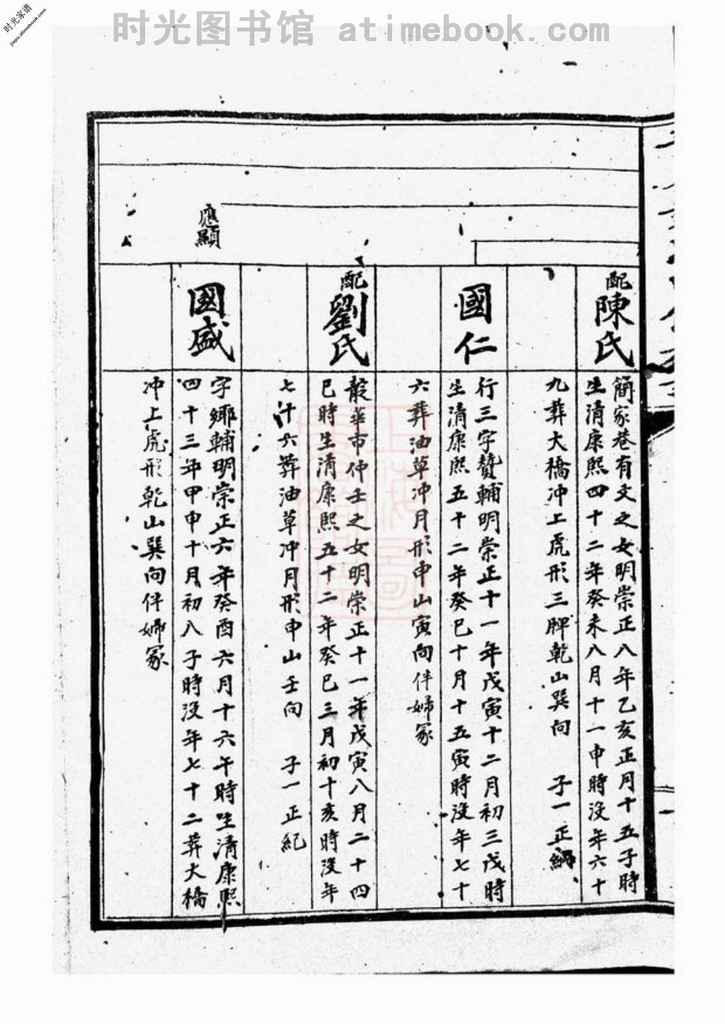 时光图书馆 atimebook.com
时光家谱
配陳氏
簡家巷有文之女明崇正八年乙亥正月十五子時
生清康熙四十二年癸未八月十一申時没年六十
九葬大橋冲上虎形三脾乾山巽向 子一正綱
國仁
行三字贊輔明崇正十一年戊寅十二月初三戊時
生清康熙五十二年癸巳十月十五寅時没年七十
六葬油草冲月形申山寅向伴婦冢
配劉氏
龍華市仲壬之女明崇正十一年戊寅八月二十四
巳時生清康熙五十二年癸巳三月初十亥時没年
七十六葬油草冲月形申山壬向 子一正紀
應顯
國盛
字鄉輔明崇正六年癸酉六月十六午時生清康熙
四十三年甲申十月初八子時没年七十二葬大橋
冲上虎形乾山巽向伴婦冢